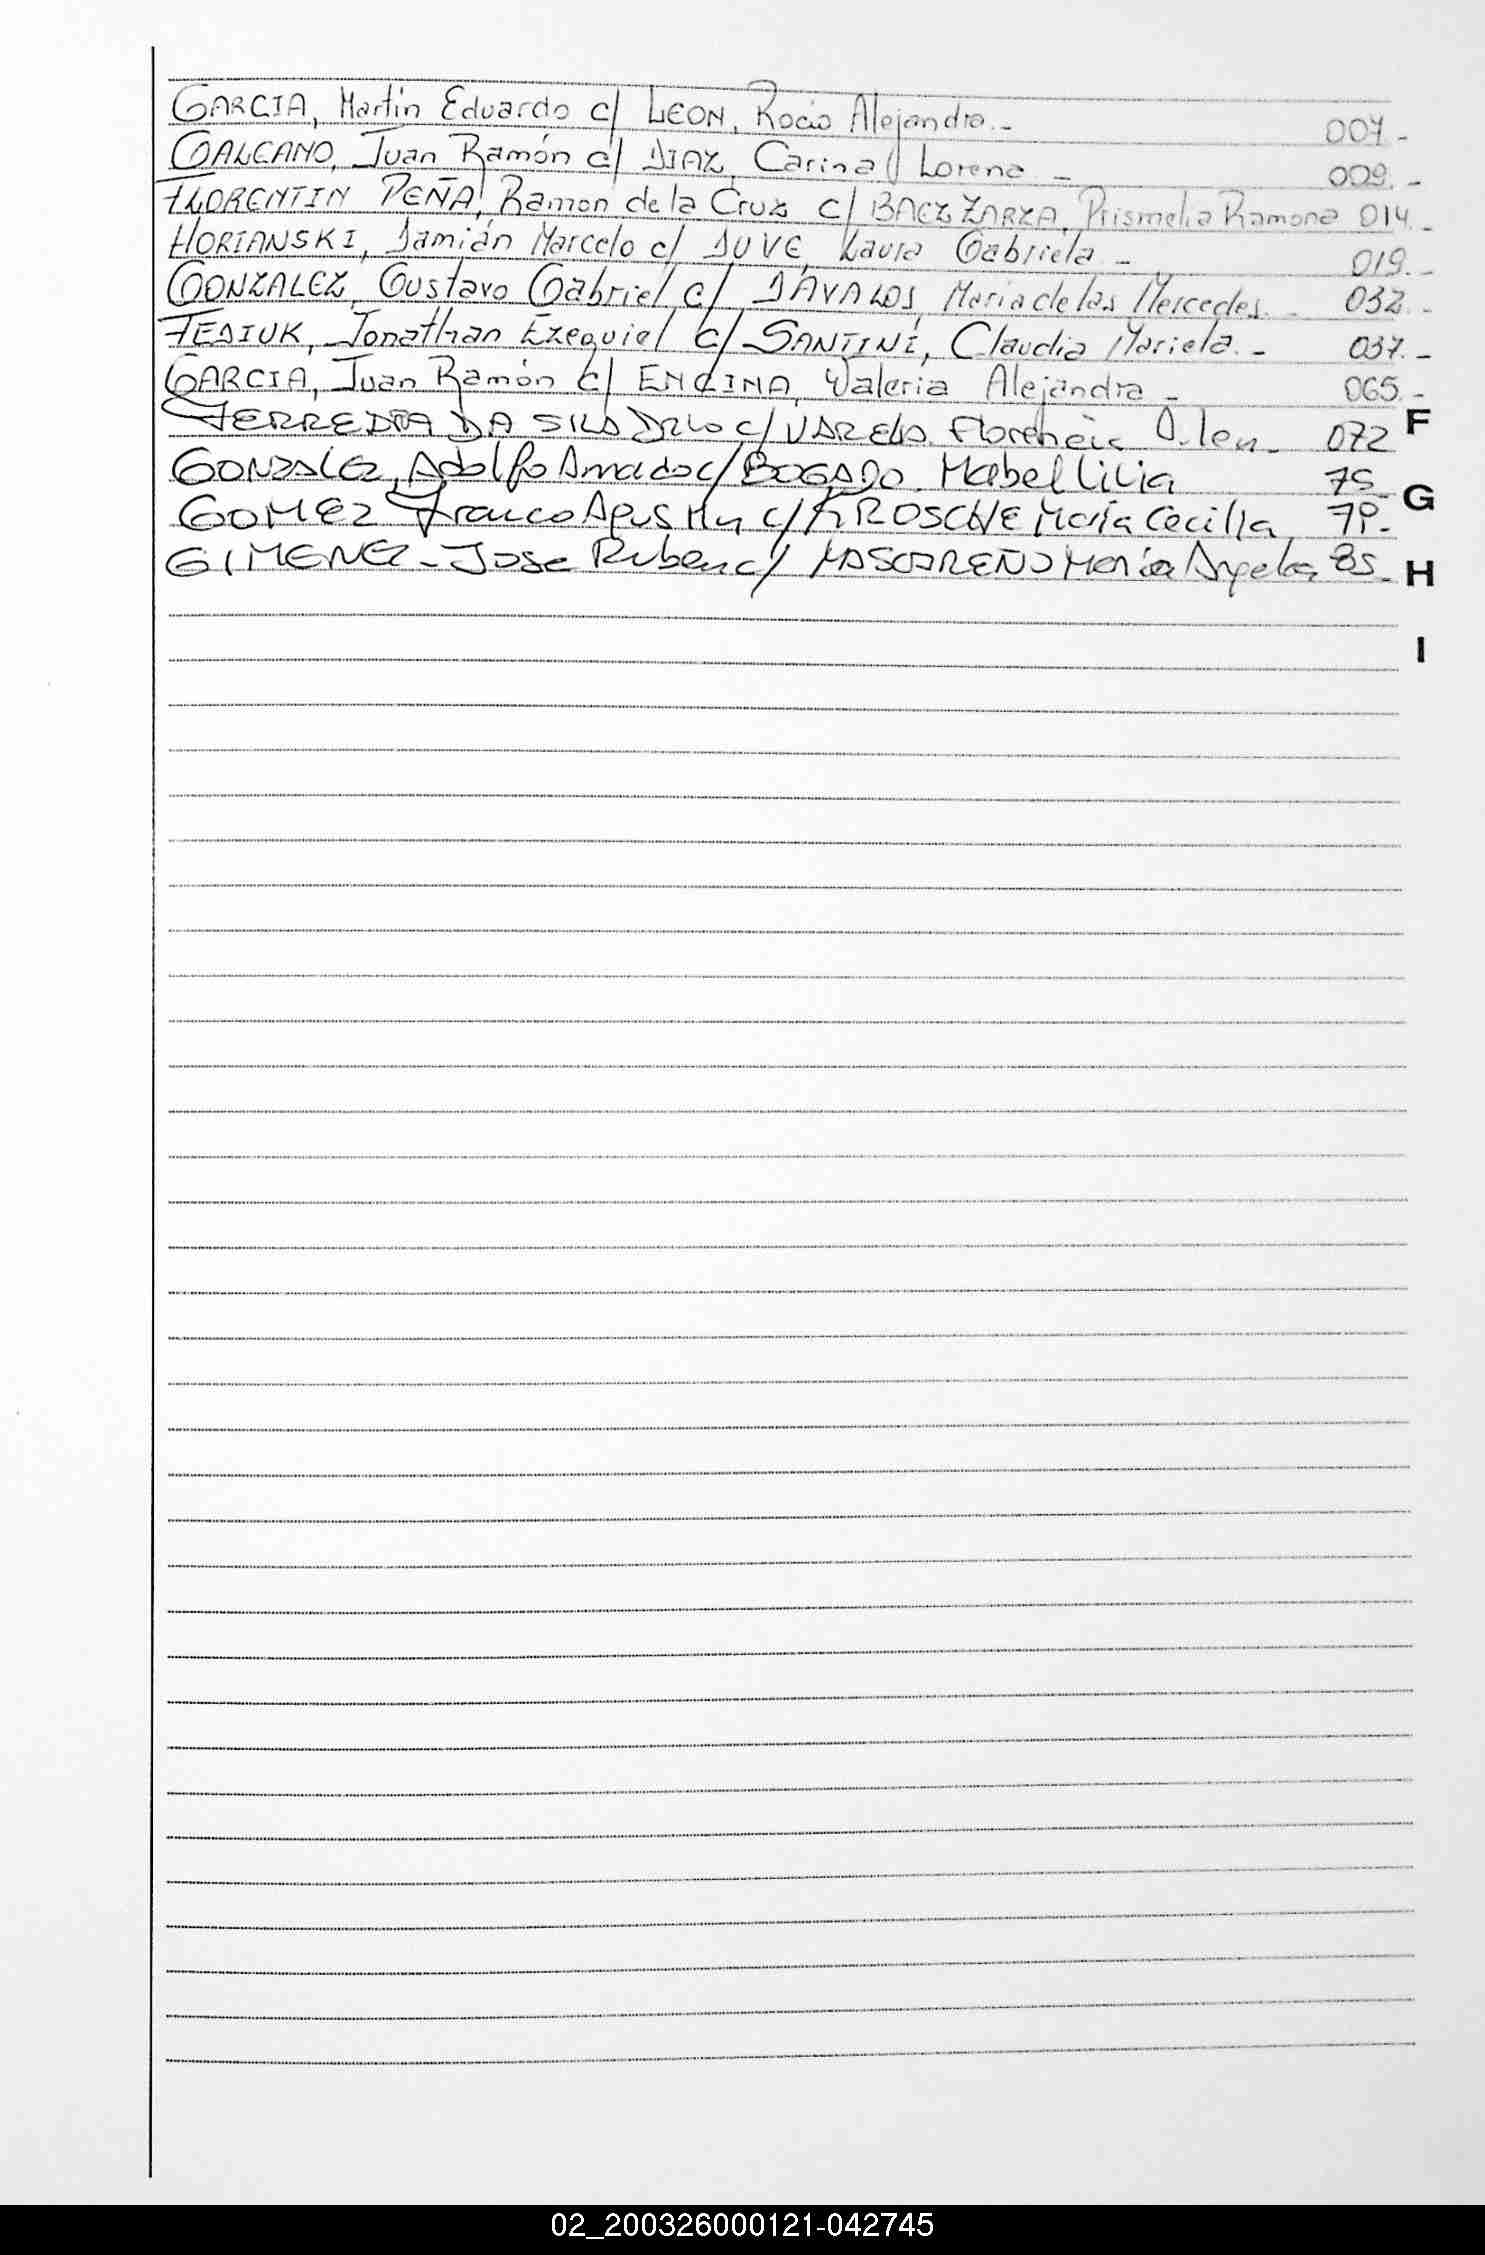 GARCIA, Martin Eduardo c/ LEON, Rocio Alejandra.- 007.-
GALEANO, Juan Ramón c/ DIAZ, Carina Lorena.- 009.-
FLORENTIN PEÑA, Ramon de la Cruz c/ BAEZ ZARZA, Prismelia Ramona 014.-
HORIANSKI, Damián Marcelo c/ DUVE, Laura Gabriela.- 019.-
GONZALEZ, Gustavo Gabriel c/ DAVALOS, Maria de las Mercedes.- 032.-
FEDIUK, Jonathan Ezequiel c/ SANTINI, Claudia Mariela.- 037.-
GARCIA, Juan Ramón c/ ENCINA, Valeria Alejandra.- 065.-
DA c/ VARELA. Florencia 072 F
GONZALEZ, Adolfo Amado c/ BOGADO. Mabel Lilia 75 G
GOMEZ Franco Agustin c/ KROSCHE Maria Cecilia 79.-
GIMENEZ - Jose Ruben c/ MASCAREÑO Maria Angela 85.- H
I
02_200326000121-042745